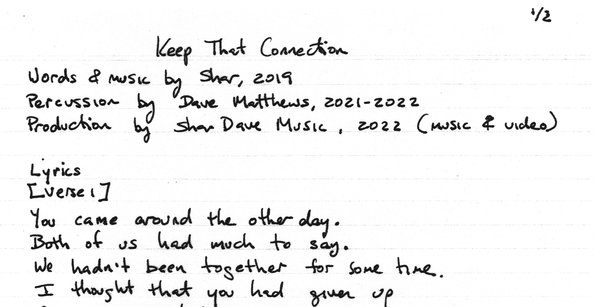 1/2
Keep That Connection
Words & music by Shar, 2019
Percussion by Dave Matthews, 2021-2022
Production by Shar Dave Music, 2022 (music & video)
Lyrics
[Verse 1]
You came around the other day.
Both of us had much to say.
We hadn't been together for some time.
I thought that you had given up